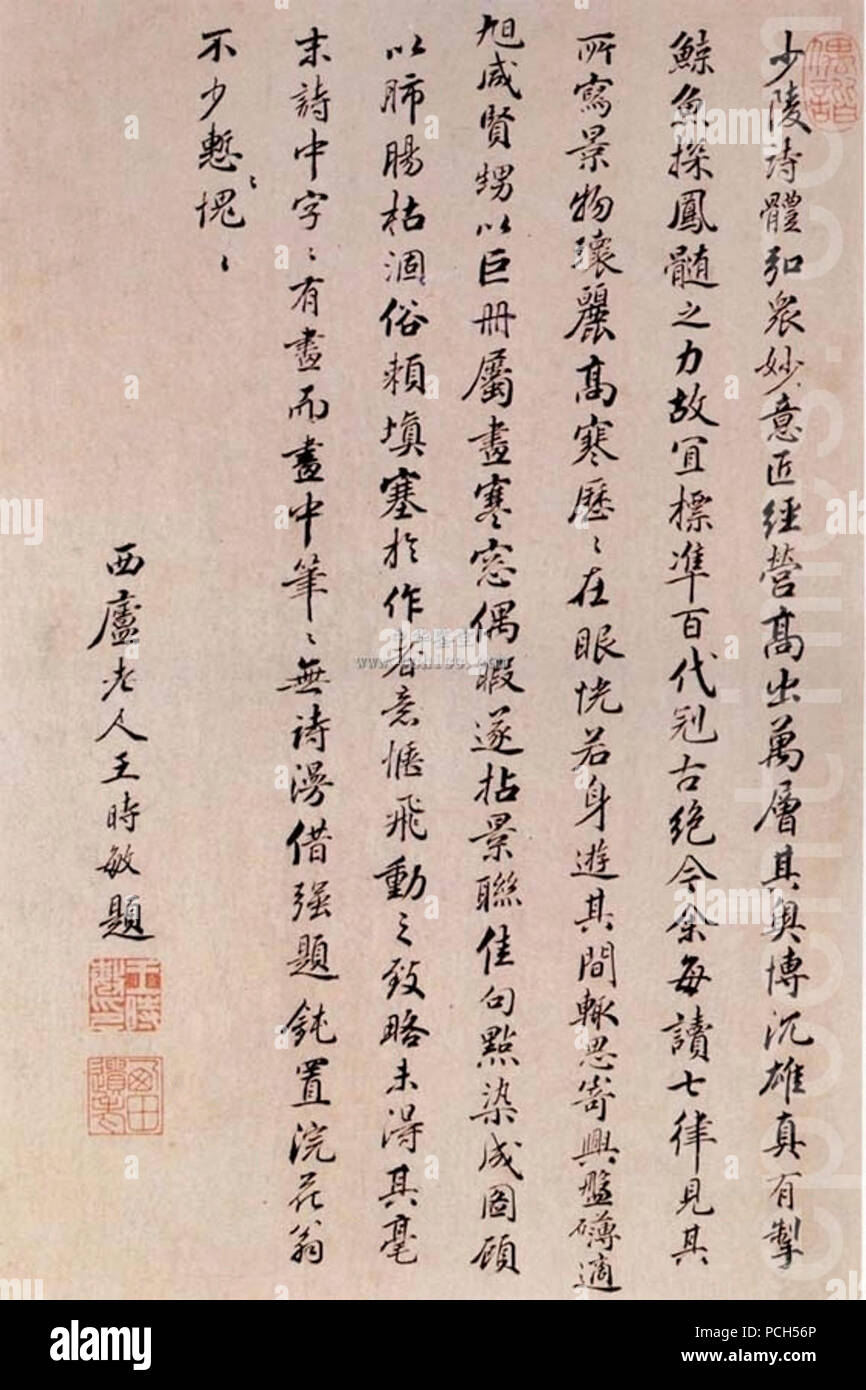 少陵詩體弘衆妙意匠經營髙出萬層其奥博沉雄真有掣
鯨魚探鳳髓之力故冝標準百代冠古絶今余每讀七律見其
所寫景物瓌麗髙寒歷〻在眼恍若身遊其間輙思寄興盤礴適
旭咸賢甥以巨冊屬畫寒窓偶暇遂拈景聯佳句點染成圖顧
以肺腸枯涸俗賴填塞於作者意惬飛動之致略未得其毫
末詩中字〻有畫而畫中筆〻無詩漫借强題鈍置浣花翁
不少慙〻愧〻
西廬老人王時敏題
偶諧
王時敏印
西田遺老
www.
a
alamy
alamy stock photo
PCH56P
www.alamy.com